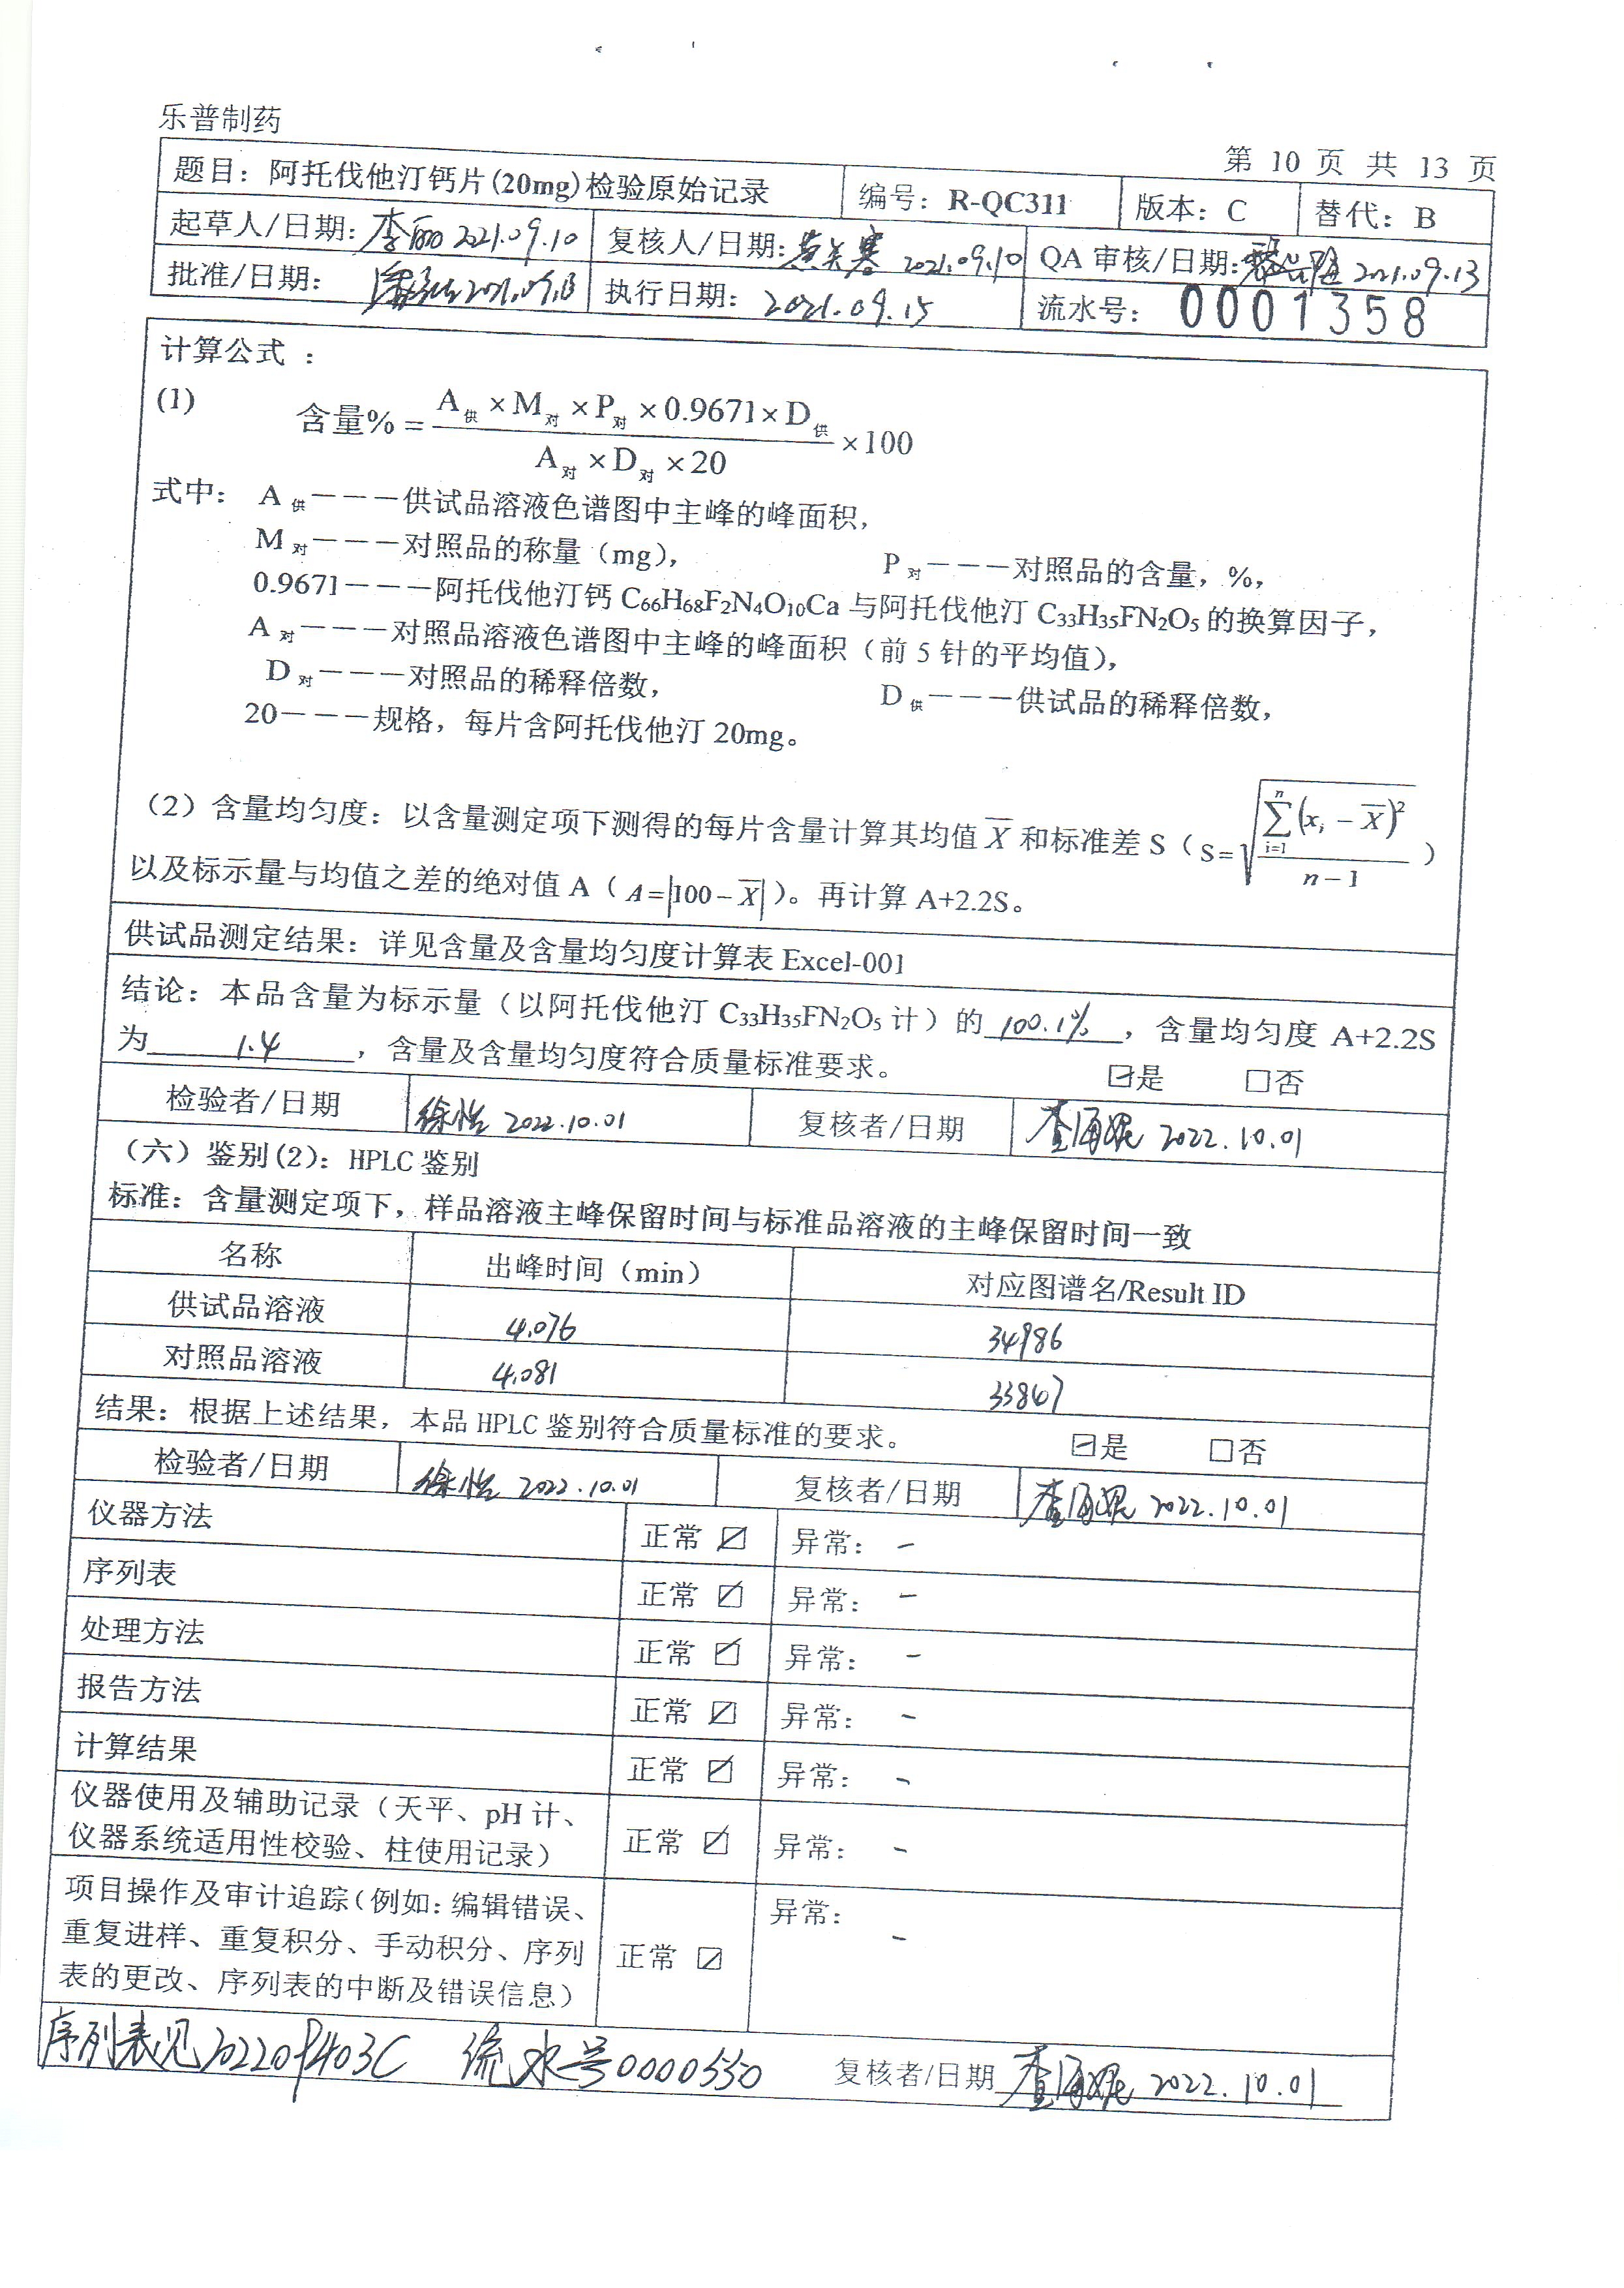 乐普制药
第 10 页 共 13 页
题目：阿托伐他汀钙片(20mg)检验原始记录 编号：R-QC311 版本：C 替代：B
起草人/日期：李丽 2021.09.10 复核人/日期： 2021.09.10 QA 审核/日期： 2021.09.13
批准/日期： 2021.09.13 执行日期：2021.09.15 流水号：0001358
计算公式 ：
(1) 含量%＝ A供 × M对 × P对 × 0.9671 × D供 / A对 × D对 × 20 ×100
式中： A 供－－－供试品溶液色谱图中主峰的峰面积，
M 对－－－对照品的称量（mg）， P 对－－－对照品的含量，%，
0.9671－－－阿托伐他汀钙 C₆₆H₆₈F₂N₄O₁₀Ca 与阿托伐他汀 C₃₃H₃₅FN₂O₅ 的换算因子，
A 对－－－对照品溶液色谱图中主峰的峰面积（前 5 针的平均值），
D 对－－－对照品的稀释倍数， D 供－－－供试品的稀释倍数，
20－－－规格，每片含阿托伐他汀 20mg。
（2）含量均匀度：以含量测定项下测得的每片含量计算其均值 X̄ 和标准差 S（ S=√(∑ⁿᵢ₌₁(xᵢ－X̄)² / n－1) ）
以及标示量与均值之差的绝对值 A（ A=|100－X̄| ）。再计算 A+2.2S。
供试品测定结果：详见含量及含量均匀度计算表 Excel-001
结论：本品含量为标示量（以阿托伐他汀 C₃₃H₃₅FN₂O₅ 计）的 100.1% ，含量均匀度 A+2.2S
为 1.4 ，含量及含量均匀度符合质量标准要求。 ☑是 □否
检验者/日期 徐怡 2022.10.01 复核者/日期 2022.10.01
（六）鉴别(2)：HPLC 鉴别
标准：含量测定项下，样品溶液主峰保留时间与标准品溶液的主峰保留时间一致
名称 出峰时间（min） 对应图谱名/Result ID
供试品溶液 4.076 34986
对照品溶液 4.081 33867
结果：根据上述结果，本品 HPLC 鉴别符合质量标准的要求。 ☑是 □否
检验者/日期 徐怡 2022.10.01 复核者/日期 2022.10.01
仪器方法 正常 ☑ 异常： －
序列表 正常 ☑ 异常： －
处理方法 正常 ☑ 异常： －
报告方法 正常 ☑ 异常： －
计算结果 正常 ☑ 异常： －
仪器使用及辅助记录（天平、pH 计、
仪器系统适用性校验、柱使用记录） 正常 ☑ 异常： －
项目操作及审计追踪（例如：编辑错误、
重复进样、重复积分、手动积分、序列
表的更改、序列表的中断及错误信息） 正常 ☑ 异常： －
序列表见202209403C 流水号0000550 复核者/日期 2022.10.01